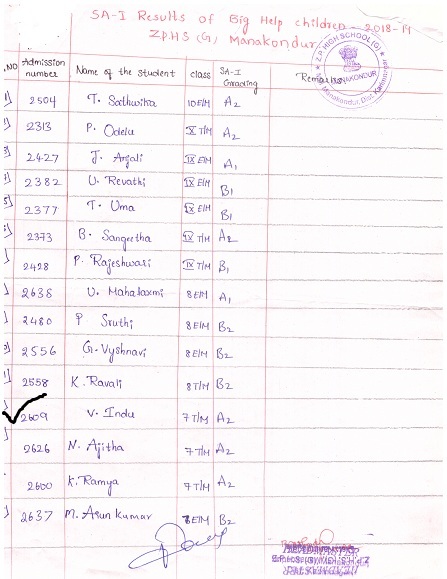 SA-I Results of Big Help children - 2018-19
ZPHS (G), Manakondur
.NO Admission number Name of the student class SA-I Grading Remarks
1) 2504 T. Sathwika 10 E/M A2
2313 P. Odelu X T/M A2
3) 2427 J. Anjali IX E/M A1
2382 U. Revathi IX E/M B1
5) 2377 T. Uma IX E/M B1
2373 B. Sangeetha IX T/M A2
) 2428 P. Rajeshwari IX T/M B1
) 2638 U. Mahalaxmi 8 E/M A1
) 2480 P Sruthi 8 E/M B2
2556 G. Vyshnavi 8 E/M B2
11) 2558 K. Ravali 8 T/M B2
) 2609 V. Indu 7 T/M A2
) 2626 N. Ajitha 7 T/M A2
2600 K. Ramya 7 T/M A2
) 2637 M. Arun Kumar 8 E/M B2